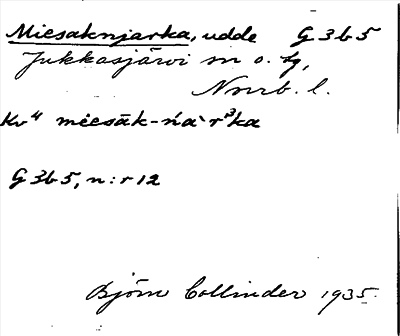 Miesaknjarka, udde G 3 b 5
Jukkasjärvi sn o. tg,
Nrrb. l.
Kv⁴ miesāk-ńà`rᵌka
G 3b 5, n:r 12
Björn Collinder 1935.